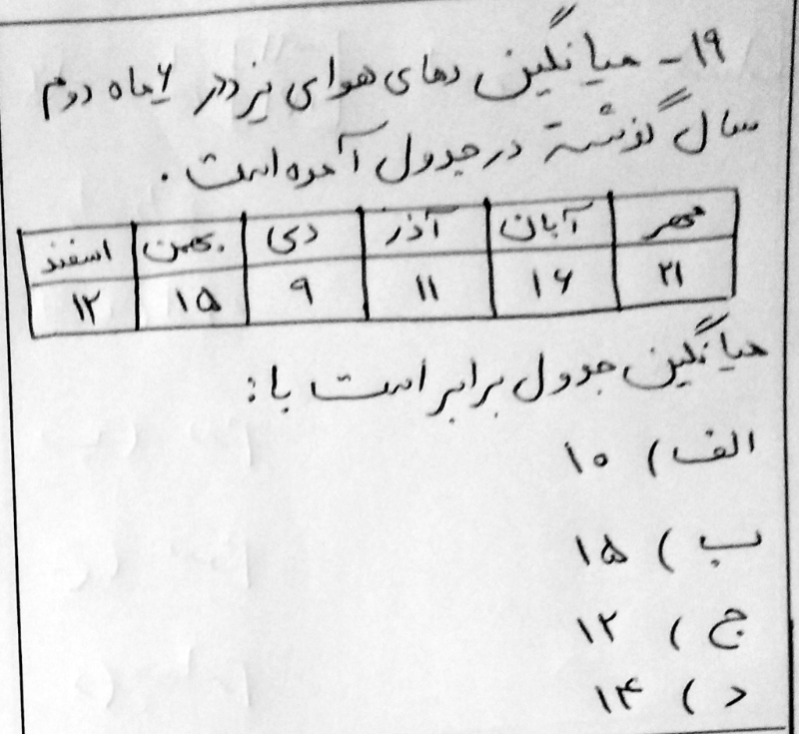 ۱۹- میانگین دمای هوای یزد در ۶ ماه دوم
سال گذشته در جدول آمده است.
مهر آبان آذر دی بهمن اسفند
۲۱ ۱۶ ۱۱ ۹ ۱۵ ۱۲
میانگین جدول برابر است با:
الف) ۱۰
ب) ۱۵
ج) ۱۲
د) ۱۴